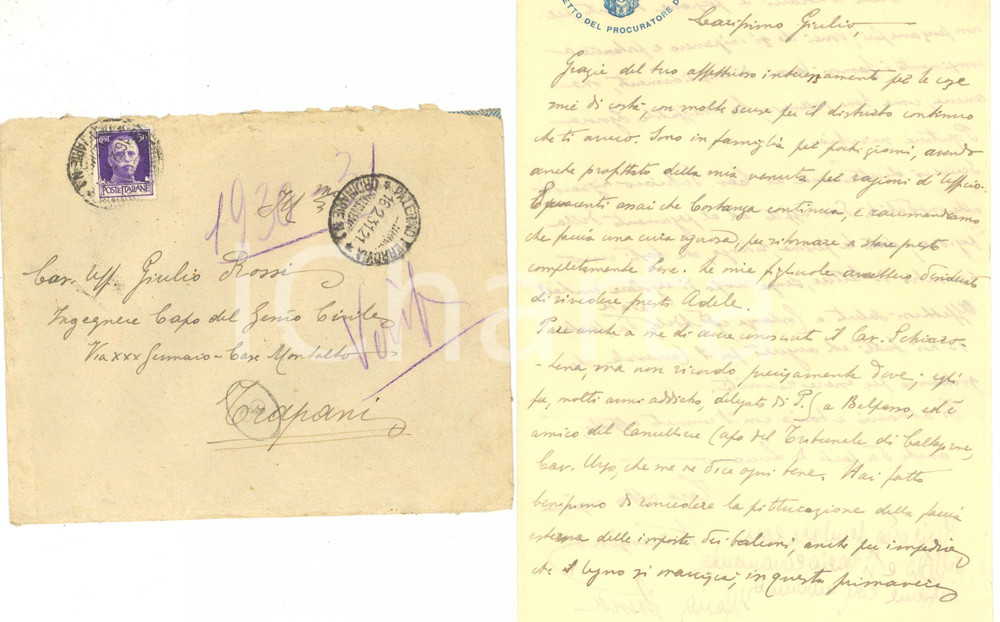 CENT. 50
POSTE ITALIANE
PALERMO FERROVIA
ORDINARIE N
16.2.31.21
1930
Verif
Ill mo
Cav. Uff. Giulio Rossi
Ingegnere Capo del Genio Civile
Via XXX Gennaio - Case Montalto
Trapani
iCharta
ETTO DEL PROCURATORE D
Carissimo Giulio,
Grazie del tuo affettuoso interessamento per le cose
mie di costì, con molte scuse per il disturbo continuo
che ti arreco. Sono in famiglia per pochi giorni, avendo
anche profittato della mia venuta per ragioni d'Ufficio.
assai che Costanza continua, e raccomandiamo
che faccia una cura rigorosa, per ritornare a stare presto
completamente bene. Le mie figliuole
di rivedere presto Adele.
Pare anche a me di aver conosciuto il Cav. Schiaro-
tena, ma non ricordo precisamente dove; egli
fu, molti anni addietro delegato di P.S a Belpasso, ed è
amico del Cancelliere Capo del Tribunale di Caltagirone,
Cav. Urzo, che me ne dice ogni bene. Hai fatto
benissimo di concedere la pitturazione della faccia
esterna delle imposte dei balconi, anche per impedire
che il legno si marcisca, in questa primavera